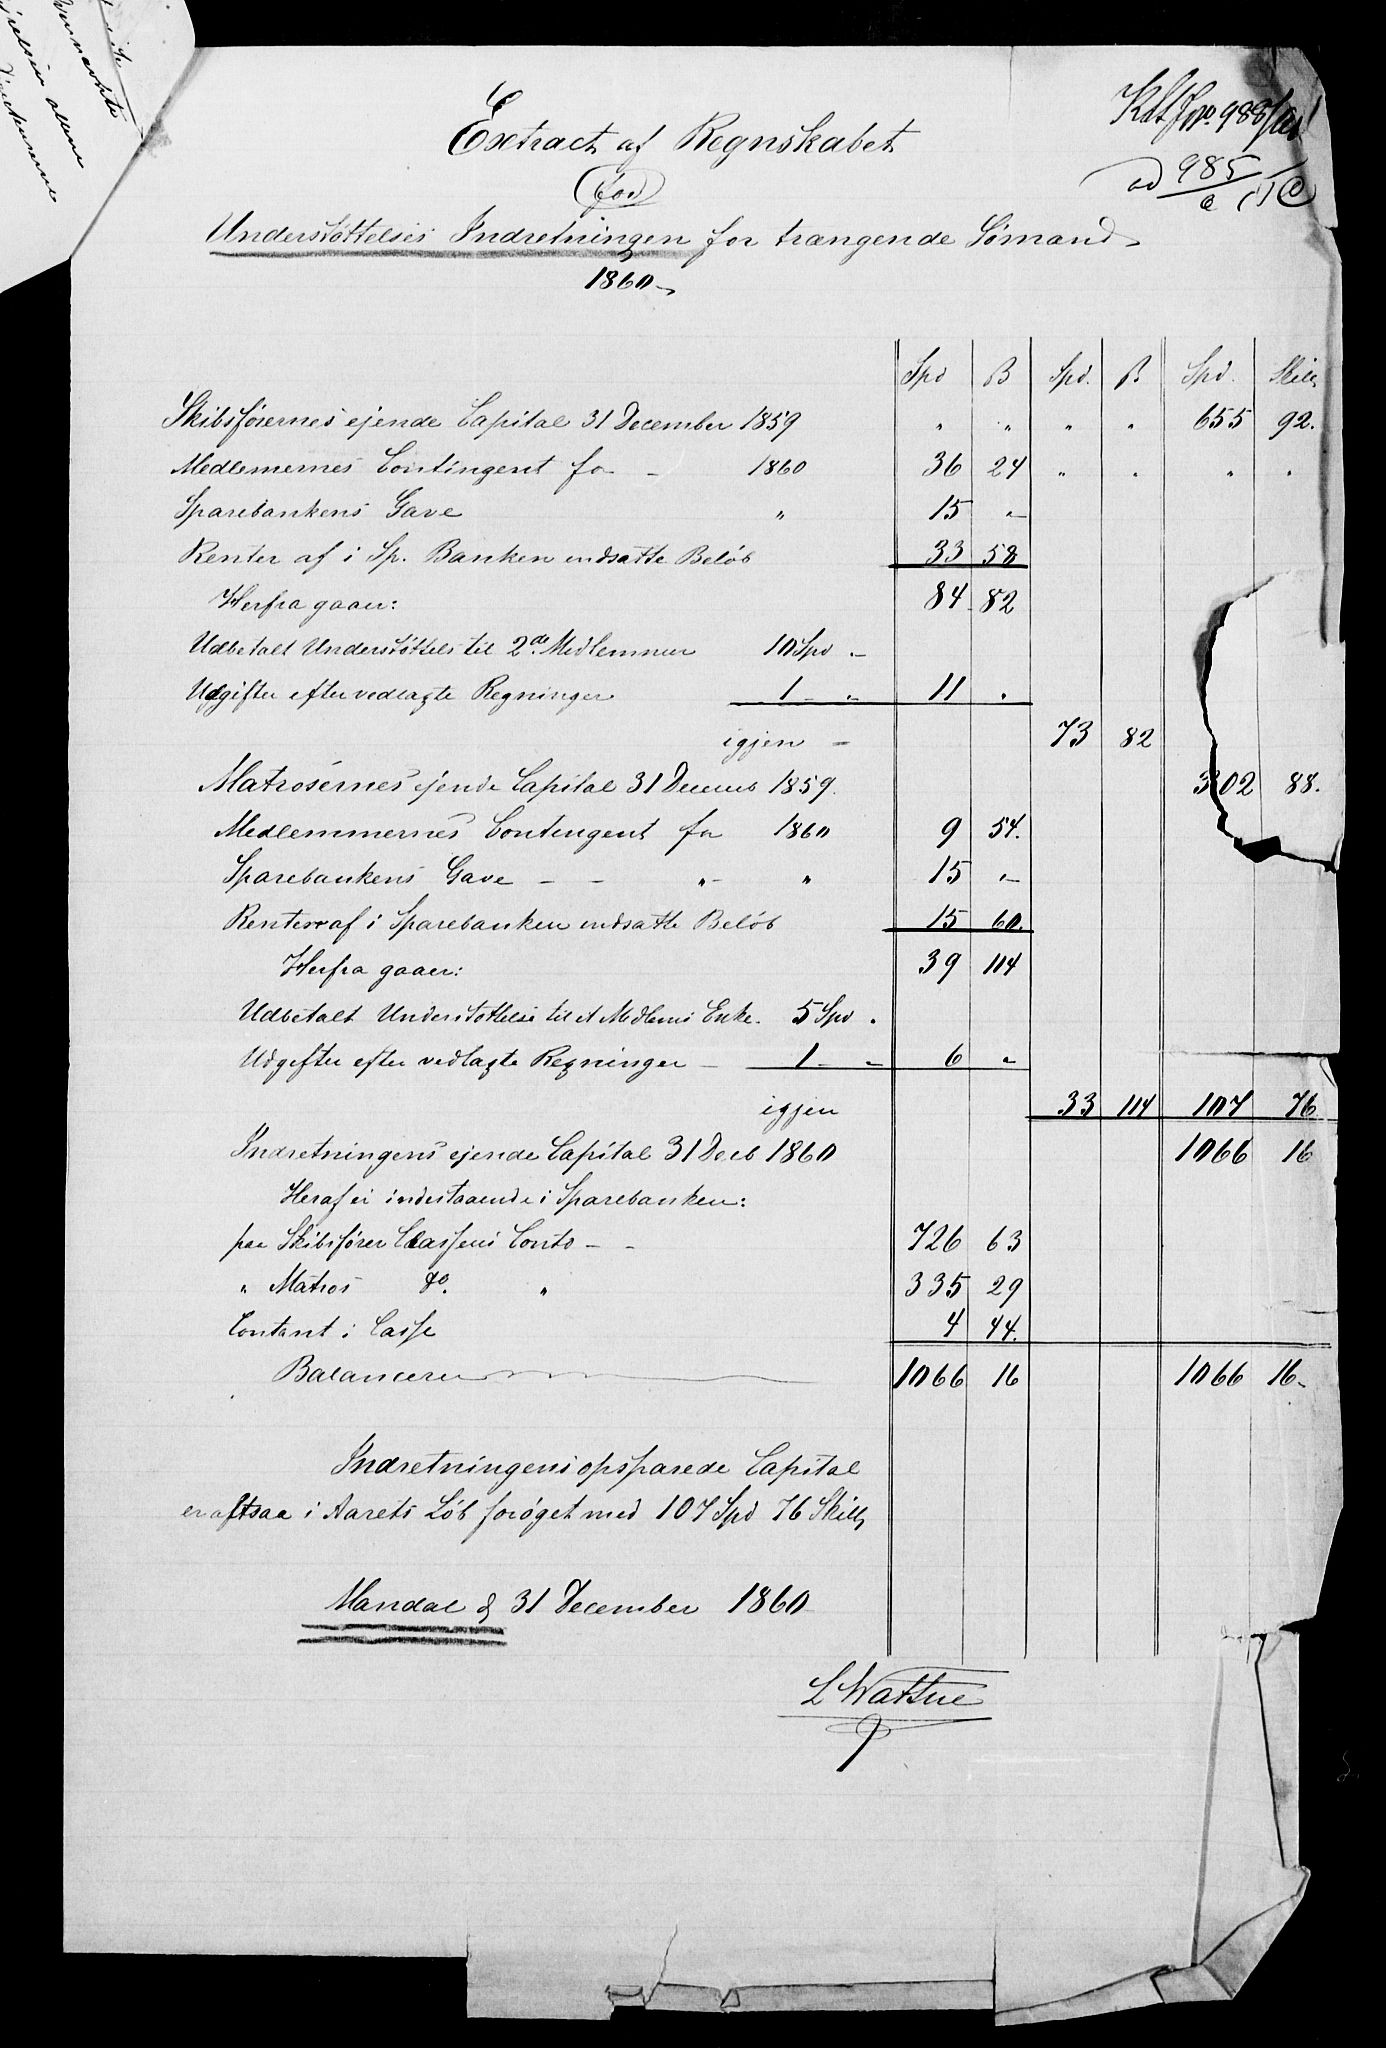 Extract af Regnskabet
for
Understøttelses Indretningen for trængende Sømænd
1860
Spd ß Spd. ß Spd. Skill
Skibsførernes ejende Capital 31 December 1859 " " " " 655 92.
Medlemernes Contingent for - 1860 36 24 " " " "
Sparebankens Gave " 15 "
Renter af i Sp. Banken indsatte Beløb 33 58
Herfra gaaer: 84 82
Udbetalt Understøttels til 2de Medlemmer 10 Spd "
Udgifter efter vedlagte Regninger 1 - " 11 "
igjen - 73 82
Matrosernes ejende Capital 31 Decemb 1859. 302 88.
Medlemmernes Contingent for 1860 9 54.
Sparebankens Gave - - " " 15 "
Renter af i Sparebanken indsatte Beløb 15 60.
Herfra gaaer: 39 114
Udbetalt Understøttelse til et Medlems Enke. 5 Spd "
Udgifter efter vedlagte Regninger - 1 - " 6 "
igjen 33 114 107 76
Indretningens ejende Capital 31 Decb 1860 1066 16
Heraf er indestaaende i Sparebanken:
paa Skibsfører Classens Conto - - 726 63
" Matros do. " 335 29
Contant i Casse 4 44.
Balancerer 1066 16 1066 16
Indretningens opsparede Capital
er altsaa i Aarets Løb forøget med 107 Spd 76 Skill
Mandal d 31 December 1860
L Wattne